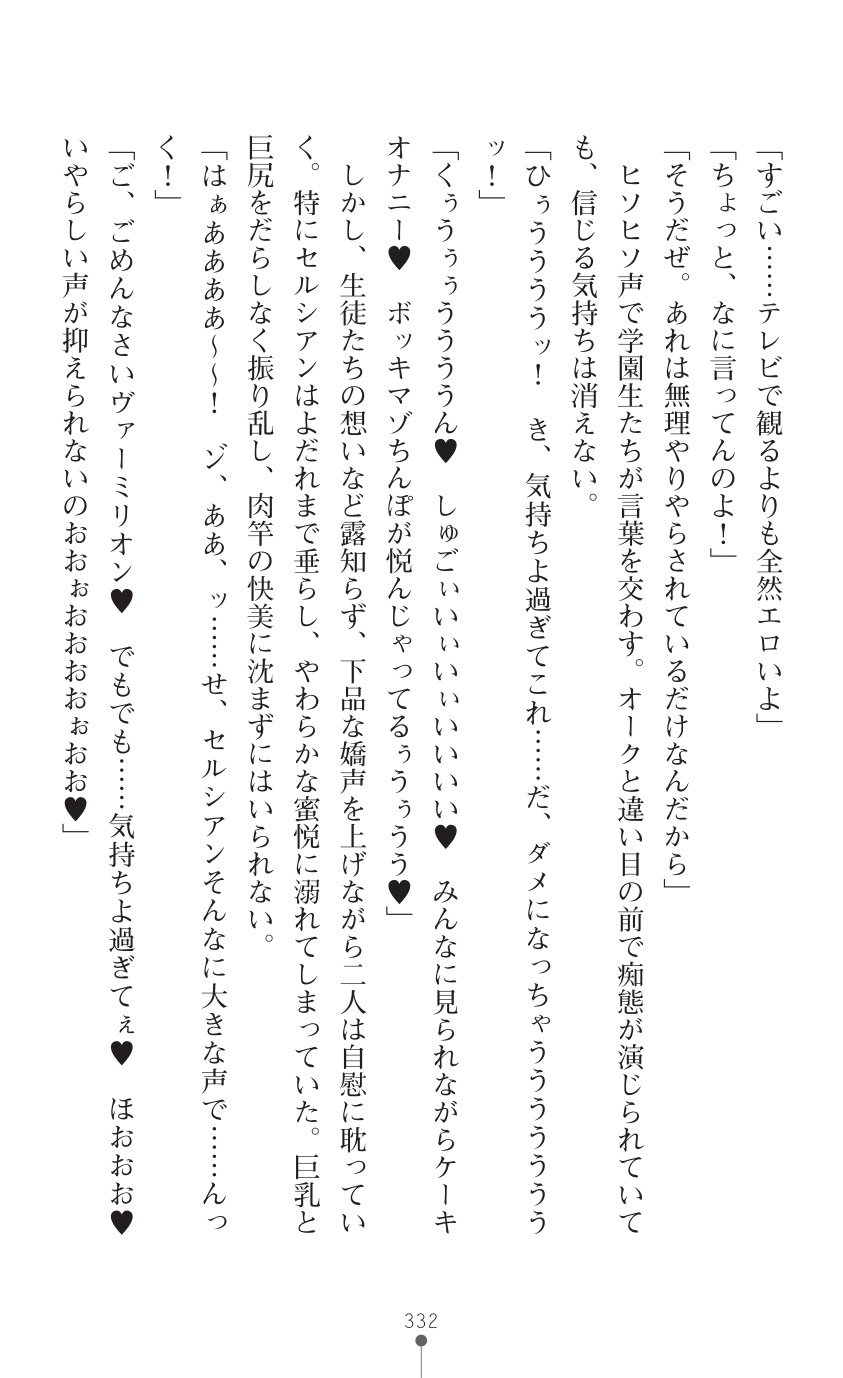 「すごい……テレビで観るよりも全然エロいよ」
「ちょっと、なに言ってんのよ！」
「そうだぜ。あれは無理やりやらされているだけなんだから」
　ヒソヒソ声で学園生たちが言葉を交わす。オークと違い目の前で痴態が演じられていて
も、信じる気持ちは消えない。
「ひぅうううッ！　き、気持ちよ過ぎてこれ……だ、ダメになっちゃううううううう
ッ！」
「くぅうぅぅうううん♥　しゅごぃいぃいぃいいいい♥　みんなに見られながらケーキ
オナニー♥　ボッキマゾちんぽが悦んじゃってるぅうぅうう♥」
　しかし、生徒たちの想いなど露知らず、下品な嬌声を上げながら二人は自慰に耽ってい
く。特にセルシアンはよだれまで垂らし、やわらかな蜜悦に溺れてしまっていた。巨乳と
巨尻をだらしなく振り乱し、肉竿の快美に沈まずにはいられない。
「はぁああああ～～！　ゾ、ああ、ッ……せ、セルシアンそんなに大きな声で……んっ
く！」
「ご、ごめんなさいヴァーミリオン♥　でもでも……気持ちよ過ぎてぇ♥　ほおおお♥
いやらしい声が抑えられないのおおぉおおおおぉおお♥」
332